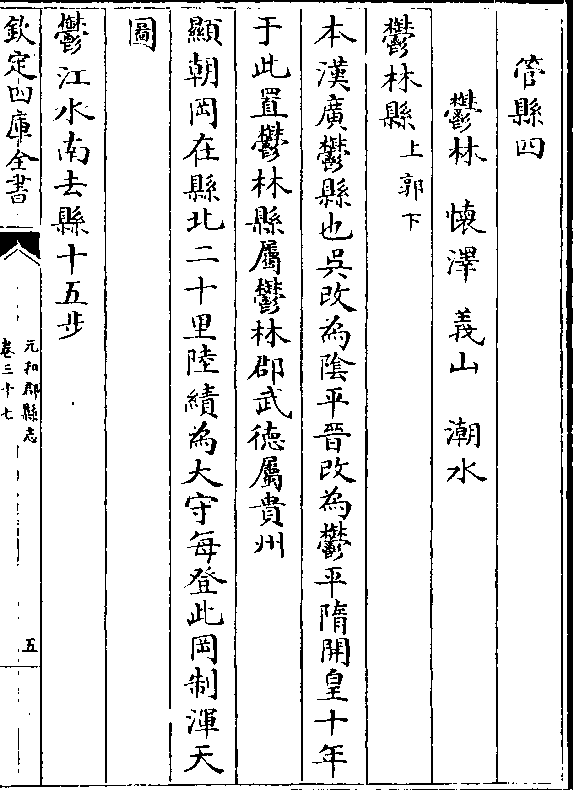 管縣四
鬱林 懐澤 義山 潮水
鬱林縣上郭下
本漢廣鬱縣也吳改為陰平晉改為鬱平隋開皇十年
于此置鬱林縣屬鬱林郡武德屬貴州
顯朝岡在縣北二十里陸績為大守每登此岡制渾天
圖
鬱江水南去縣十五步
欽定四庫全書
元和郡縣志
卷三十七
五